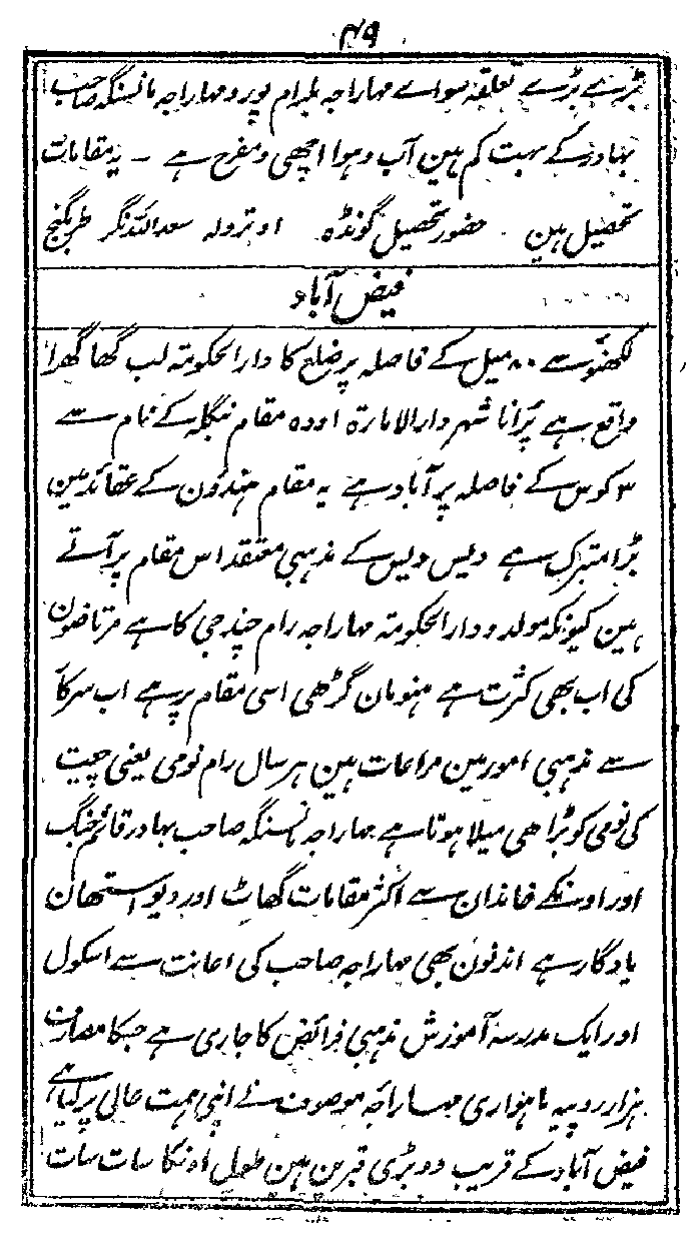 ۴۹
بڑے بڑے تعلقہ سواے مہاراجہ بلرام پور و مہاراجہ مانسنگہ صاحب
بہادر کے بہت کم ہین آب و ہوا اچھی و مفرح ہے ۔ یہ مقامات
تحصیل ہین ۔ حضور تحصیل گونڈہ اوترولہ سعداللہ نگر طربگنج
فیض آباد
لکھنؤ سے ۸۰ میل کے فاصلہ پر ضلع کا دارالحکومتہ لب گھاگھرا
واقع ہے پرانا شہر دارالامارۃ اودہ مقام بنگلہ کے نام سے
۳ کوس کے فاصلہ پر آباد ہے یہ مقام ہندؤن کے عقائد مین
بڑا متبرک ہے دیس دیس کے مذہبی معتقد اس مقام پر آتے
ہین کیونکہ مولد و دارالحکومتہ مہاراجہ رام چندر جی کا ہے مرتاضون
کی اب بھی کثرت ہے ہنومان گڑھی اسی مقام پر ہے اب سرکا
سے مذہبی امور مین مراعات ہین ہر سال رام نومی یعنی چیت
کی نومی کو بڑا ھی میلا ہوتا ہے مہاراجہ مانسنگہ صاحب بہادر قائم جنگ
اور اونکے خاندان سے اکثر مقامات گھاٹ اور دیو استھان
یادگار ہے اندنون بھی مہاراجہ صاحب کی اعانت سے اسکول
اور ایک مدرسہ آموزش مذہبی فرائض کا جاری ہے جسکا مصارف
ہزار روپیہ ماہواری مہاراجہ موصوف نے اپنی ہمت عالی پر لیا ہے
فیض آباد کے قریب دو بڑی قبرین ہین طول اونکا سات سات